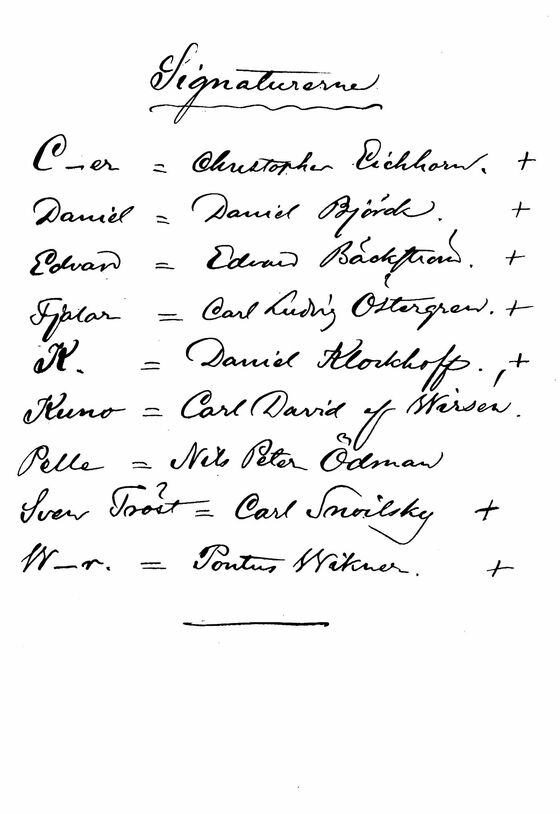 Signaturerne
C–er = Christopher Eichhorn. +
Daniel = Daniel Björck. +
Edvard = Edvard Bäckström. +
Fjalar = Carl Ludvig Östergren. +
K. = Daniel Klockhoff. +
Kuno = Carl David af Wirsén.
Pelle = Nils Peter Ödman
Sven Tröst = Carl Snoilsky +
W–r. = Pontus Wikner. +